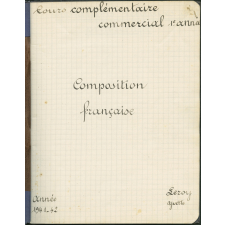 Cours complémentaire
commercial 1e année
Composition
française
Année
1941-42
Leroy